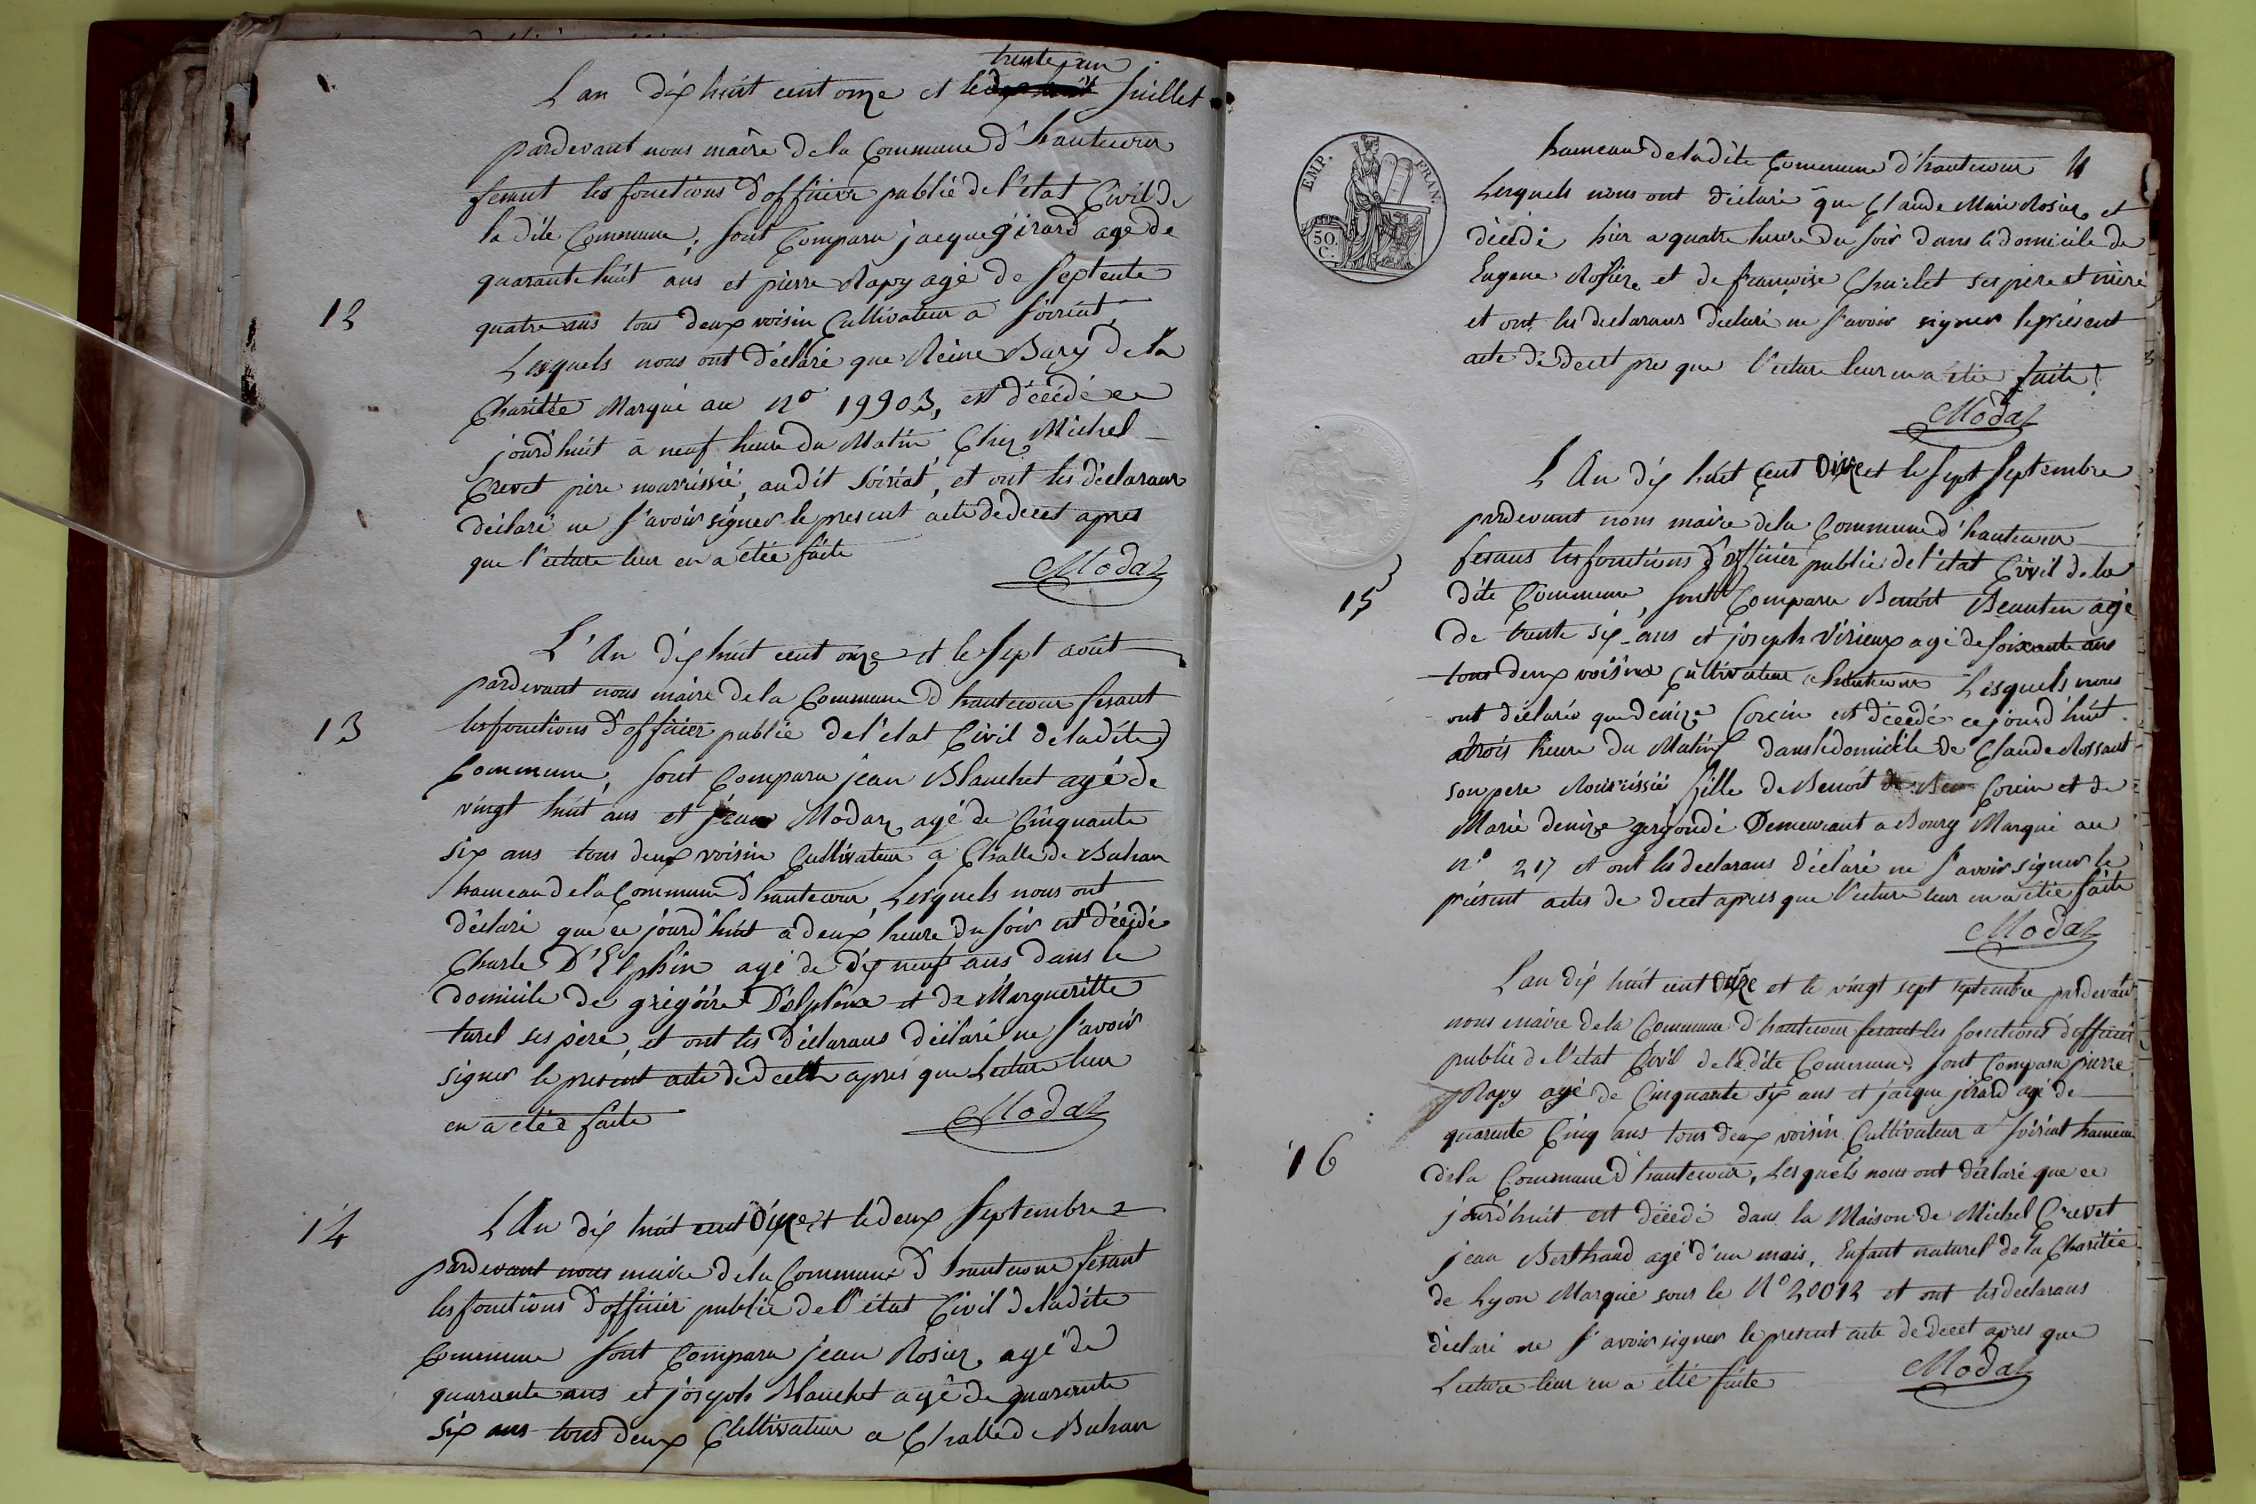 trente un
L'an dix huit cent onze et le dix huit Juillet
pardevant nous maire dela Commune d'hautecour
fesant les fonctions d'officier public de l'état Civil de
la dite Commune, sont Comparu jacque girard agé de
quarante huit ans et pierre Rapy agé de septente
12
quatre ans tous deux voisin Cultivateur a Soiriat,
Lesquels nous ont déclaré que Reine Bary de la
Charitée Marqué au n° 19903, est décédé ce
jourd'huit a neuf heure du Matin Chez Michel
Crevet père nourrissié, audit Soiriat, et ont les déclarans
déclaré ne s'avoir signer le present acte de decet apres
que l'ecture leur en a étée faite
Modaz
L'An dix huit cent onze et le Sept août
pardevant nous maire dela Commune d'hautecour fesant
13
les fonctions d'officier public de l'état Civil de ladite
Commune, sont Comparu jean Blanchet agé de
vingt huit ans et jean Modaz agé de Cinquante
six ans tous deux voisin Cultivateur a Challe de Buhan
hameau de la Commune d'hautecour Lesquels nous ont
déclaré que ce jourd'huit a deux heure du soir est décédé
Charle D'Elphin agé de dix neuf ans dans le
domicile de grégoire Delphin et de Margueritte
turel ses père, et ont les déclarans déclaré ne s'avoir
signer le present acte de decet apres que Lecture leur
en a étée faite
Modaz
14
L'An dix huit cent Onze et le deux Septembre
pardevant nous maire dela Commune d'hautecour fesant
les fonctions d'officier public de l'état Civil de ladite
Commune sont Comparu jean Rosier agé de
quarante ans et joseph Blanchet agé de quarante
six ans tous deux Cultivateur a Challe de Buhan
EMP. FRAN.
50. C.
hameau de ladite Commune d'hautecour 4
Lesquels nous ont déclaré que Claude Marie Rosier et
décédé hier a quatre heure du soir dans le domicile de
Eugene Rosier et de françoise Chatelet ses père et mère
et ont les declarans déclaré ne s'avoir signer le présent
acte de decet pres que l'ecture leur en a étée faite
Modaz
L'An dix huit Cent Onze et le sept Septembre
pardevant nous maire dela Commune d'hautecour
fesans les fonctions d'officier public de l'état Civil de la
15
dite Commune, sont Comparu Benoît Beauten agé
de trente six ans et joseph Virieux agé de soixante ans
tous deux voisins Cultivateur a hautecour Lesquels nous
ont déclaré que denize Corcin est décédé ce jourd'huit
a trois heure du Matin dans le domicile de Claude Rossant
son pere Nourrissié fille de Benoit Corcin et de
Marie denize gergondé Demeurant a Bourg Marqué au
n° 217 et ont les declarans déclaré ne s'avoir signer le
présent actes de decet apres que l'ecture leur en a étée faite
Modaz
L'an dix huit cent Onze et le vingt sept septembre pardevant
nous maire dela Commune d'hautecour fesant les fonctions d'officier
public de l'etat Civil de ladite Commune, sont Comparu pierre
Rapy agé de Cinquante six ans et jacque jirard agé de
quarente Cinq ans tous deux voisin Cultivateur a Soiriat hameau
16
dela Commune d'hautecour, Lesquels nous ont déclaré que ce
jourd'huit est décédé dans la Maison de Michel Crevet
jean Berthaud agé d'un mois, Enfant naturel de la Charitée
de Lyon Marqué sous le N° 20012 et ont les declarans
déclaré ne s'avoir signer le present acte de decet apres que
Lecture leur en a étée faite
Modaz